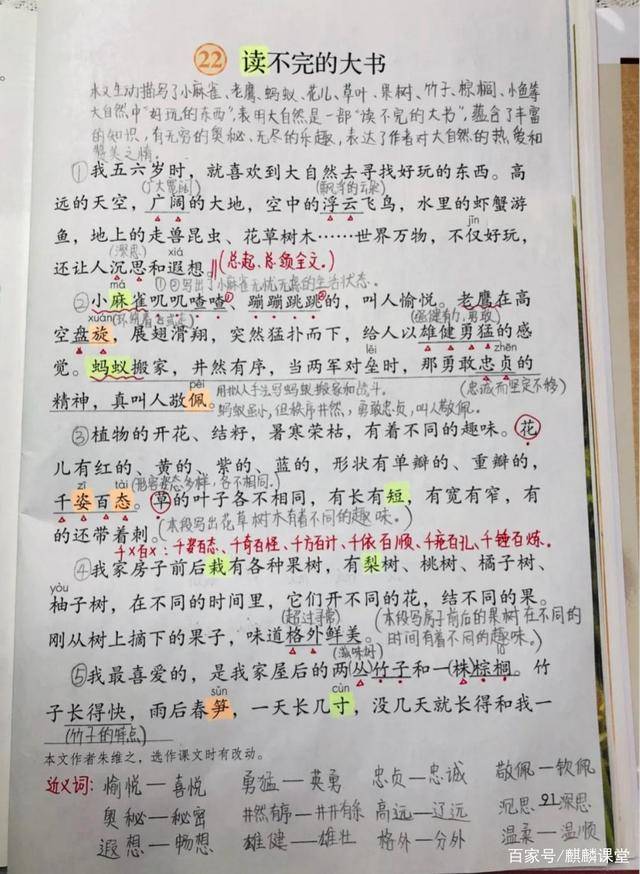 22 读不完的大书
本文生动描写了小麻雀、老鹰、蚂蚁、花儿、草叶、果树、竹子、棕榈、小鱼等
大自然中"好玩的东西",表明大自然是一部"读不完的大书",蕴含了丰富
的知识,有无穷的奥秘、无尽的乐趣,表达了作者对大自然的热爱和
赞美之情。
①我五六岁时,就喜欢到大自然去寻找好玩的东西。高
(广大宽阔)
(飘浮的云朵)
远的天空,广阔的大地,空中的浮云飞鸟,水里的虾蟹游
jǐn
鱼,地上的走兽昆虫、花草树木……世界万物,不仅好玩,
(深思) xiá
还让人沉思和遐想。‖(总起、总领全文。)
má ①②写出了小麻雀无忧无虑的生活状态。
②小麻雀叽叽喳喳①、蹦蹦跳跳②的,叫人愉悦。老鹰在高
xuán
空盘旋,展翅滑翔,突然猛扑而下,给人以雄健勇猛的感
lěi zhēn
觉。蚂蚁搬家,井然有序,当两军对垒时,那勇敢忠贞的
pèi 用拟人手法写蚂蚁搬家和战斗。 (忠诚而坚定不移)
精神,真叫人敬佩。 蚂蚁虽小,但秩序井然,勇敢忠贞,叫人敬佩。
③植物的开花、结籽,暑寒荣枯,有着不同的趣味。花
儿有红的、黄的、紫的、蓝的,形状有单瓣的、重瓣的,
zī tài (形容姿态多样,各不相同。)
千姿百态。草的叶子各不相同,有长有短,有宽有窄,有
的还带着刺。(本段写出花草树木有着不同的趣味。)
千×百×:千姿百态、千奇百怪、千方百计、千依百顺、千疮百孔、千锤百炼。
④我家房子前后栽有各种果树,有梨树、桃树、橘子树、
yòu
柚子树,在不同的时间里,它们开不同的花,结不同的果。
(超过寻常) (本段写房子前后的果树在不同的
刚从树上摘下的果子,味道格外鲜美。 时间有着不同的趣味。)
(滋味好)
⑤我最喜爱的,是我家屋后的两(丛)竹子和一(株)棕榈。竹
sǔn cùn
子长得快,雨后春笋,一天长几寸,没几天就长得和我一
(竹子的特点)
本文作者朱维之,选作课文时有改动。
近义词: 愉悦—喜悦 勇猛—英勇 忠贞—忠诚 敬佩—钦佩
奥秘—秘密 井然有序—井井有条 高远—辽远 沉思—深思
91
遐想—畅想 雄健—雄壮 格外—分外 温柔—温顺
百家号/麒麟课堂